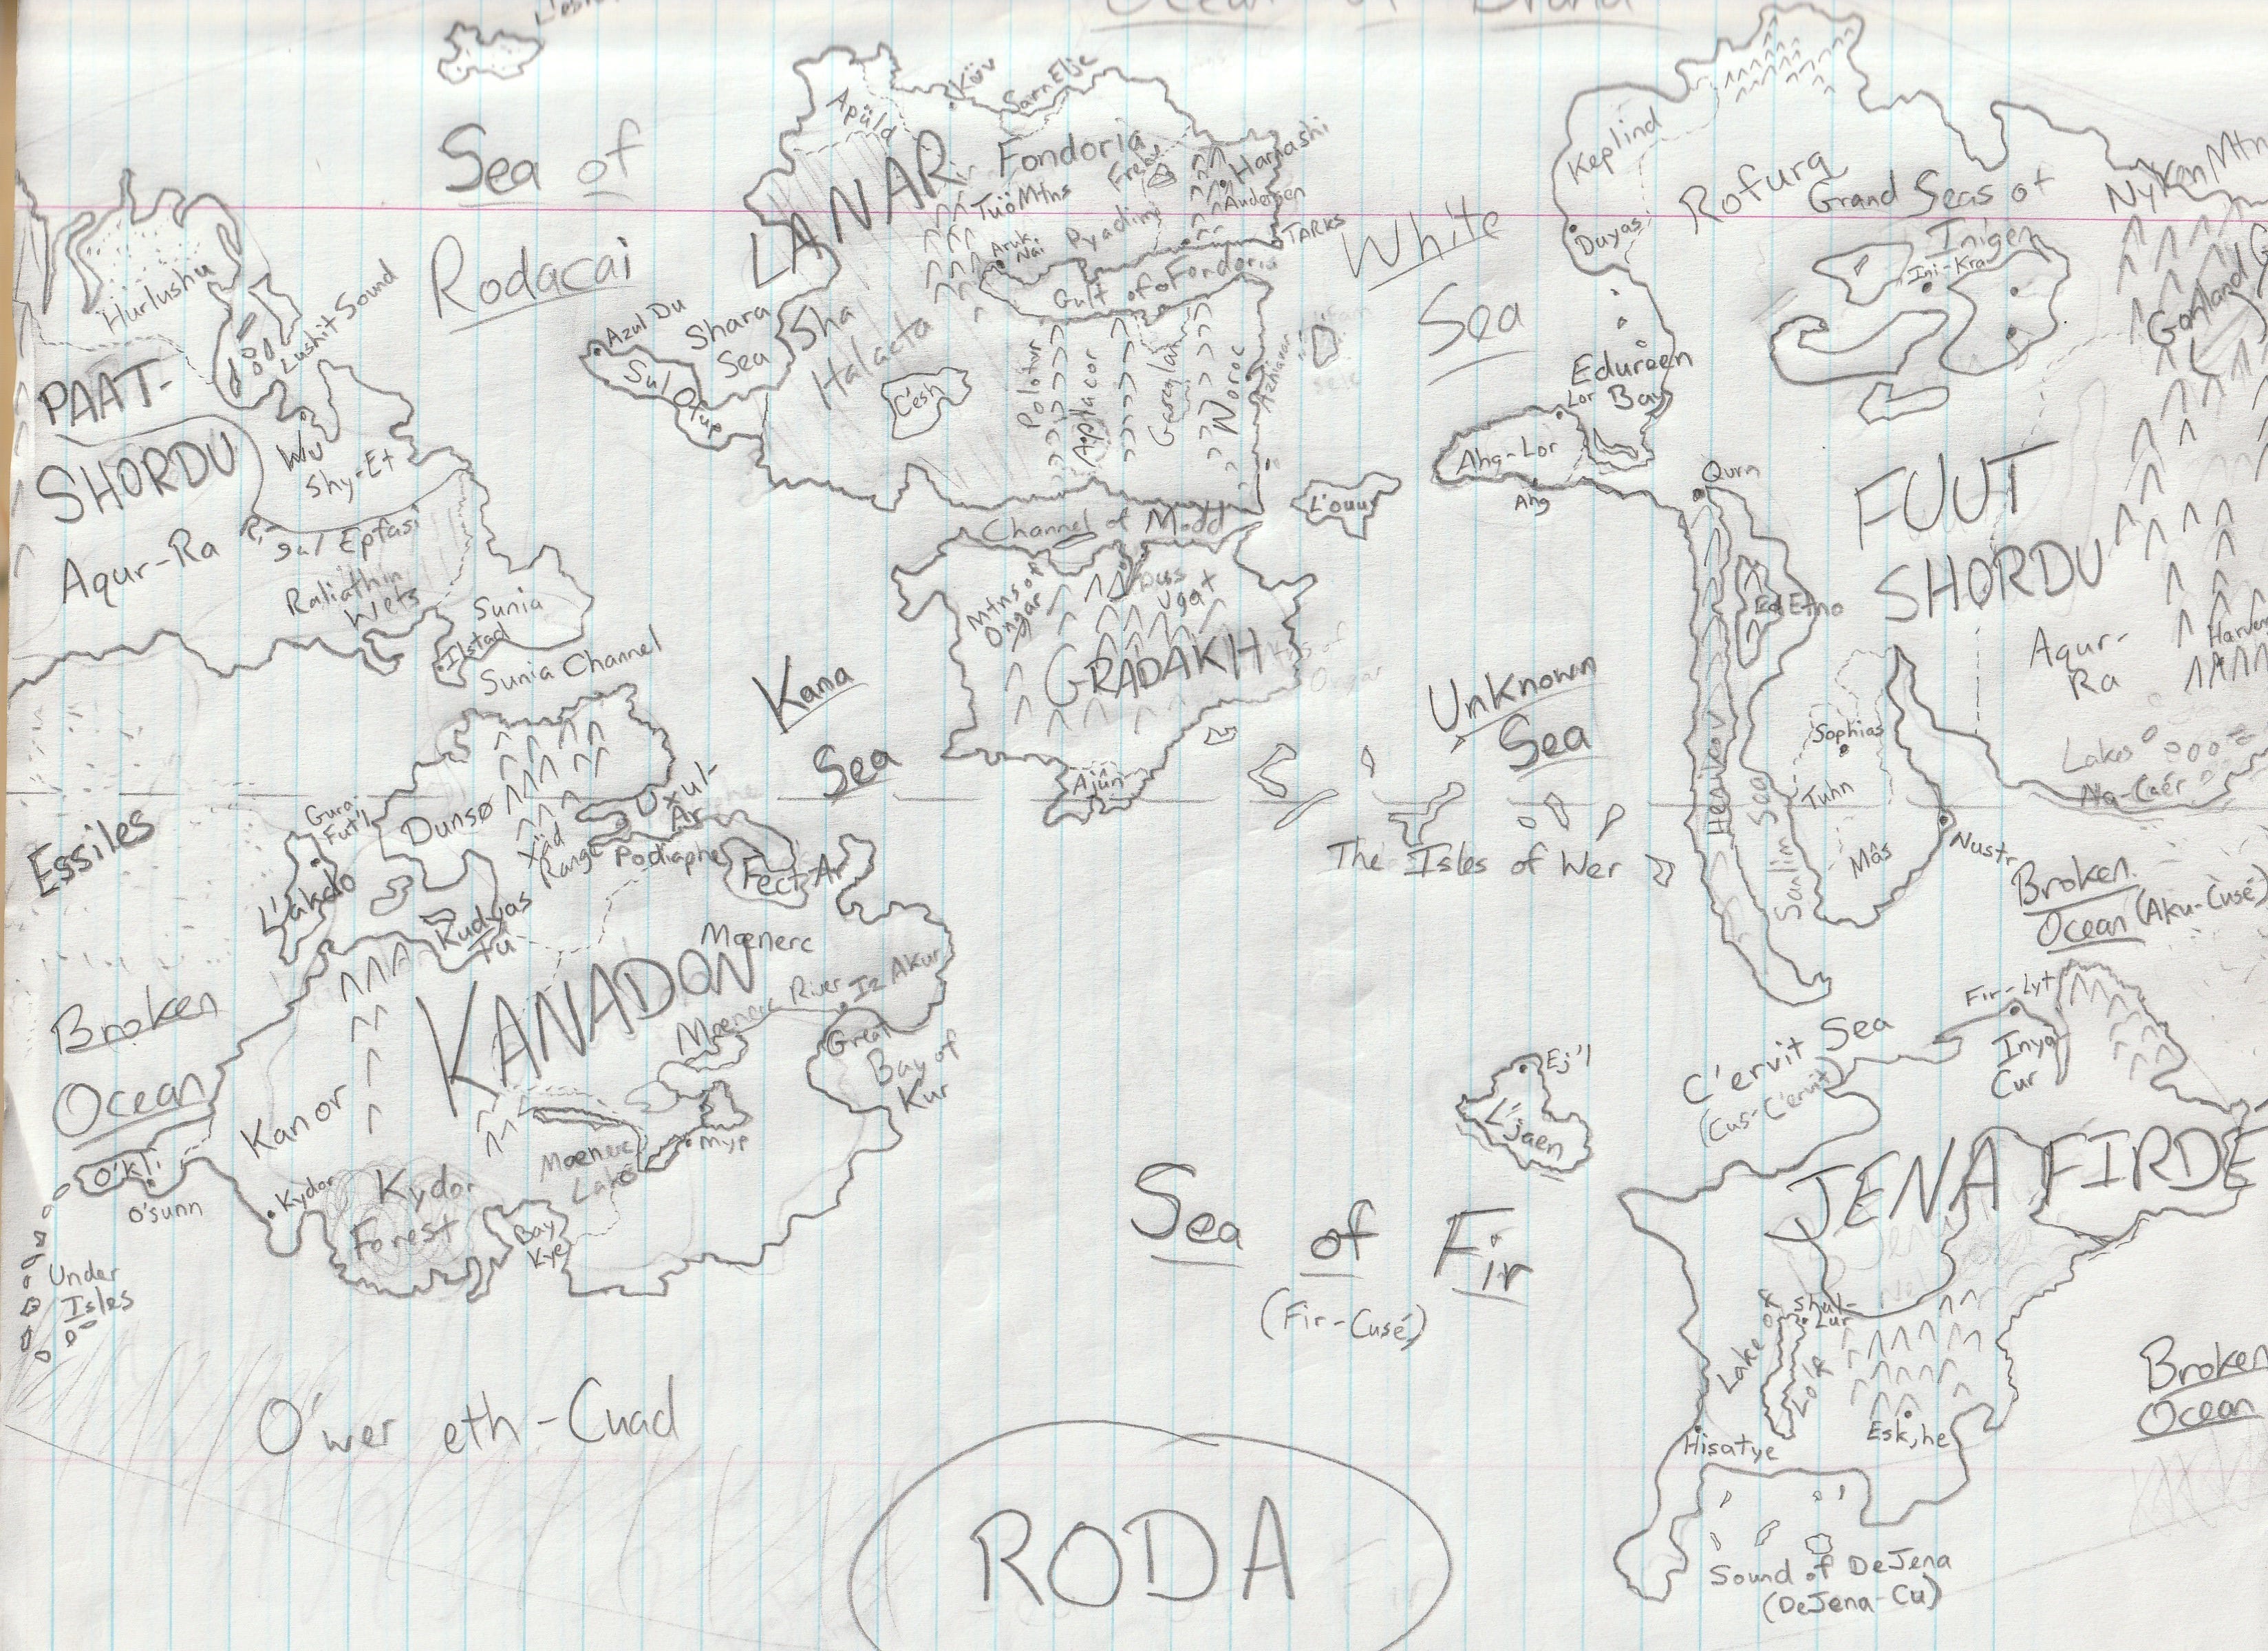 Sea of
Rodacai
Hurlushu
Lushit Sound
PAAT-
SHORDU
Wu
Shy-Et
Aqur-Ra
Raliathin
Wets
Sunia
Ilstad
Sunia Channel
Apüld
Küv
Sarn Elje
LANAR
Fondoria
Tuö Mtns
Aruk
Nai
Pyadim
Harnashi
Andersen
TARKS
Gulf of Fondoria
Azul Du
Sul Otup
Shara
Sea
Sha
Halaeta
C'esh
Polotur
Aplacor
Noroc
L'ouur
Channel of Modd
Mtns of
Ongar
Dus
Ugat
GRADAKH
Ajûn
Kana
Sea
White
Sea
Keplind
Duyas
Rofurq
Grand Seas of
Inigen
Ini-Kra
Nyken Mtn
Edureen
Bay
Lor
Ahg-Lor
Ahg
Qurn
Ed Etno
FUUT
SHORDU
Aqur-
Ra
Lakes
Na-Caér
Unknown
Sea
The Isles of Wer
Sanlim Sea
Sophias
Tuhn
Mâs
Nustr
Broken
Ocean (Aku-Cusé)
Essiles
Gura-
Fut'l
L'akdo
Dunsø
Xäd
Range
Uxul-
Ar
Podiaphe
Fect-Ar
Kudyas
Fü
KANADON
Mænerc
Mænerc River
Iz Akur
Great
Bay of
Kur
Broken
Ocean
Kanor
O'kli
O'sunn
Kydor
Kydor
Forest
Bay
Kye
Mænerc
Lake
Myp
Under
Isles
O'wer eth-Cuad
Ej'l
L'jaen
Sea of Fir
(Fir-Cusé)
C'ervit Sea
(Cus-C'ervit)
Fir-Lyt
Inya
Cur
JENA FIRDE
Shul-
Lur
Lake
Lolf
Hisatye
Esk,he
Broken
Ocean
Sound of DeJena
(DeJena-Cu)
RODA